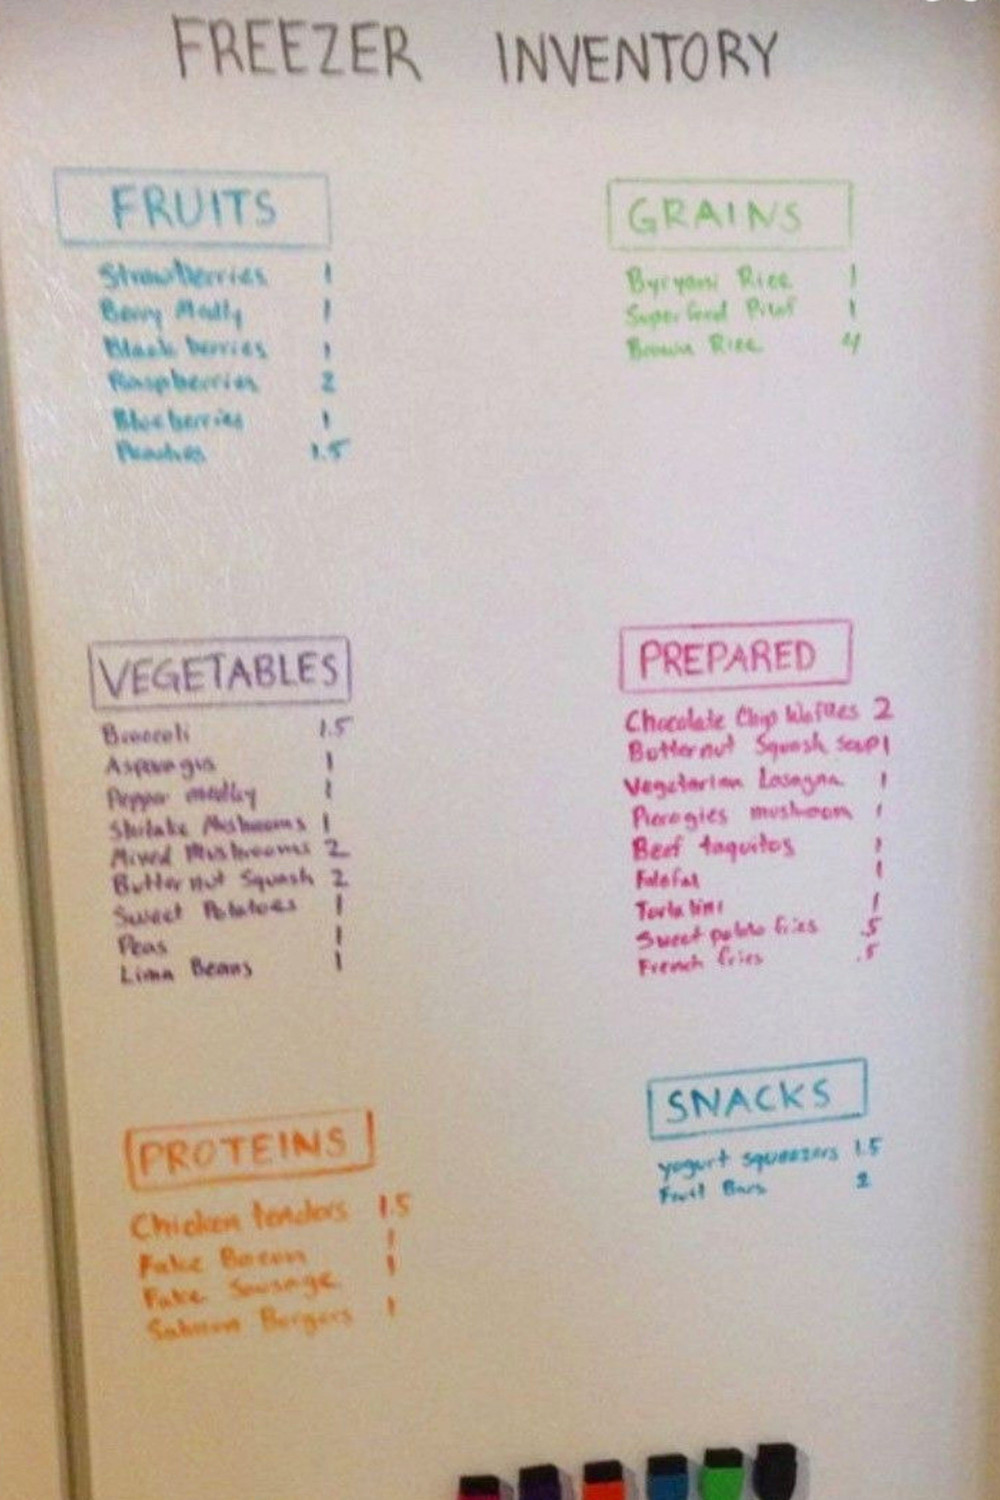 FREEZER INVENTORY
FRUITS
Strawberries 1
Berry Medly 1
Black berries 1
Raspberries 2
Blueberries 1
Peaches 1.5
GRAINS
Byryani Rice 1
Superfood Pilaf 1
Brown Rice 4
VEGETABLES
Broccoli 1.5
Asparagus 1
Pepper medley 1
Shitake Mushrooms 1
Mixed Mushrooms 2
Butternut Squash 2
Sweet Potatoes 1
Peas 1
Lima Beans 1
PREPARED
Chocolate Chip Waffles 2
Butternut Squash soup 1
Vegetarian Lasagna 1
Pierogies mushroom 1
Beef taquitos 1
Falafal 1
Tortalini 1
Sweet potato fries .5
French fries .5
PROTEINS
Chicken tenders 1.5
Fake Bacon 1
Fake Sausage 1
Salmon Burgers 1
SNACKS
yogurt squeezers 1.5
Fruit Bars 2